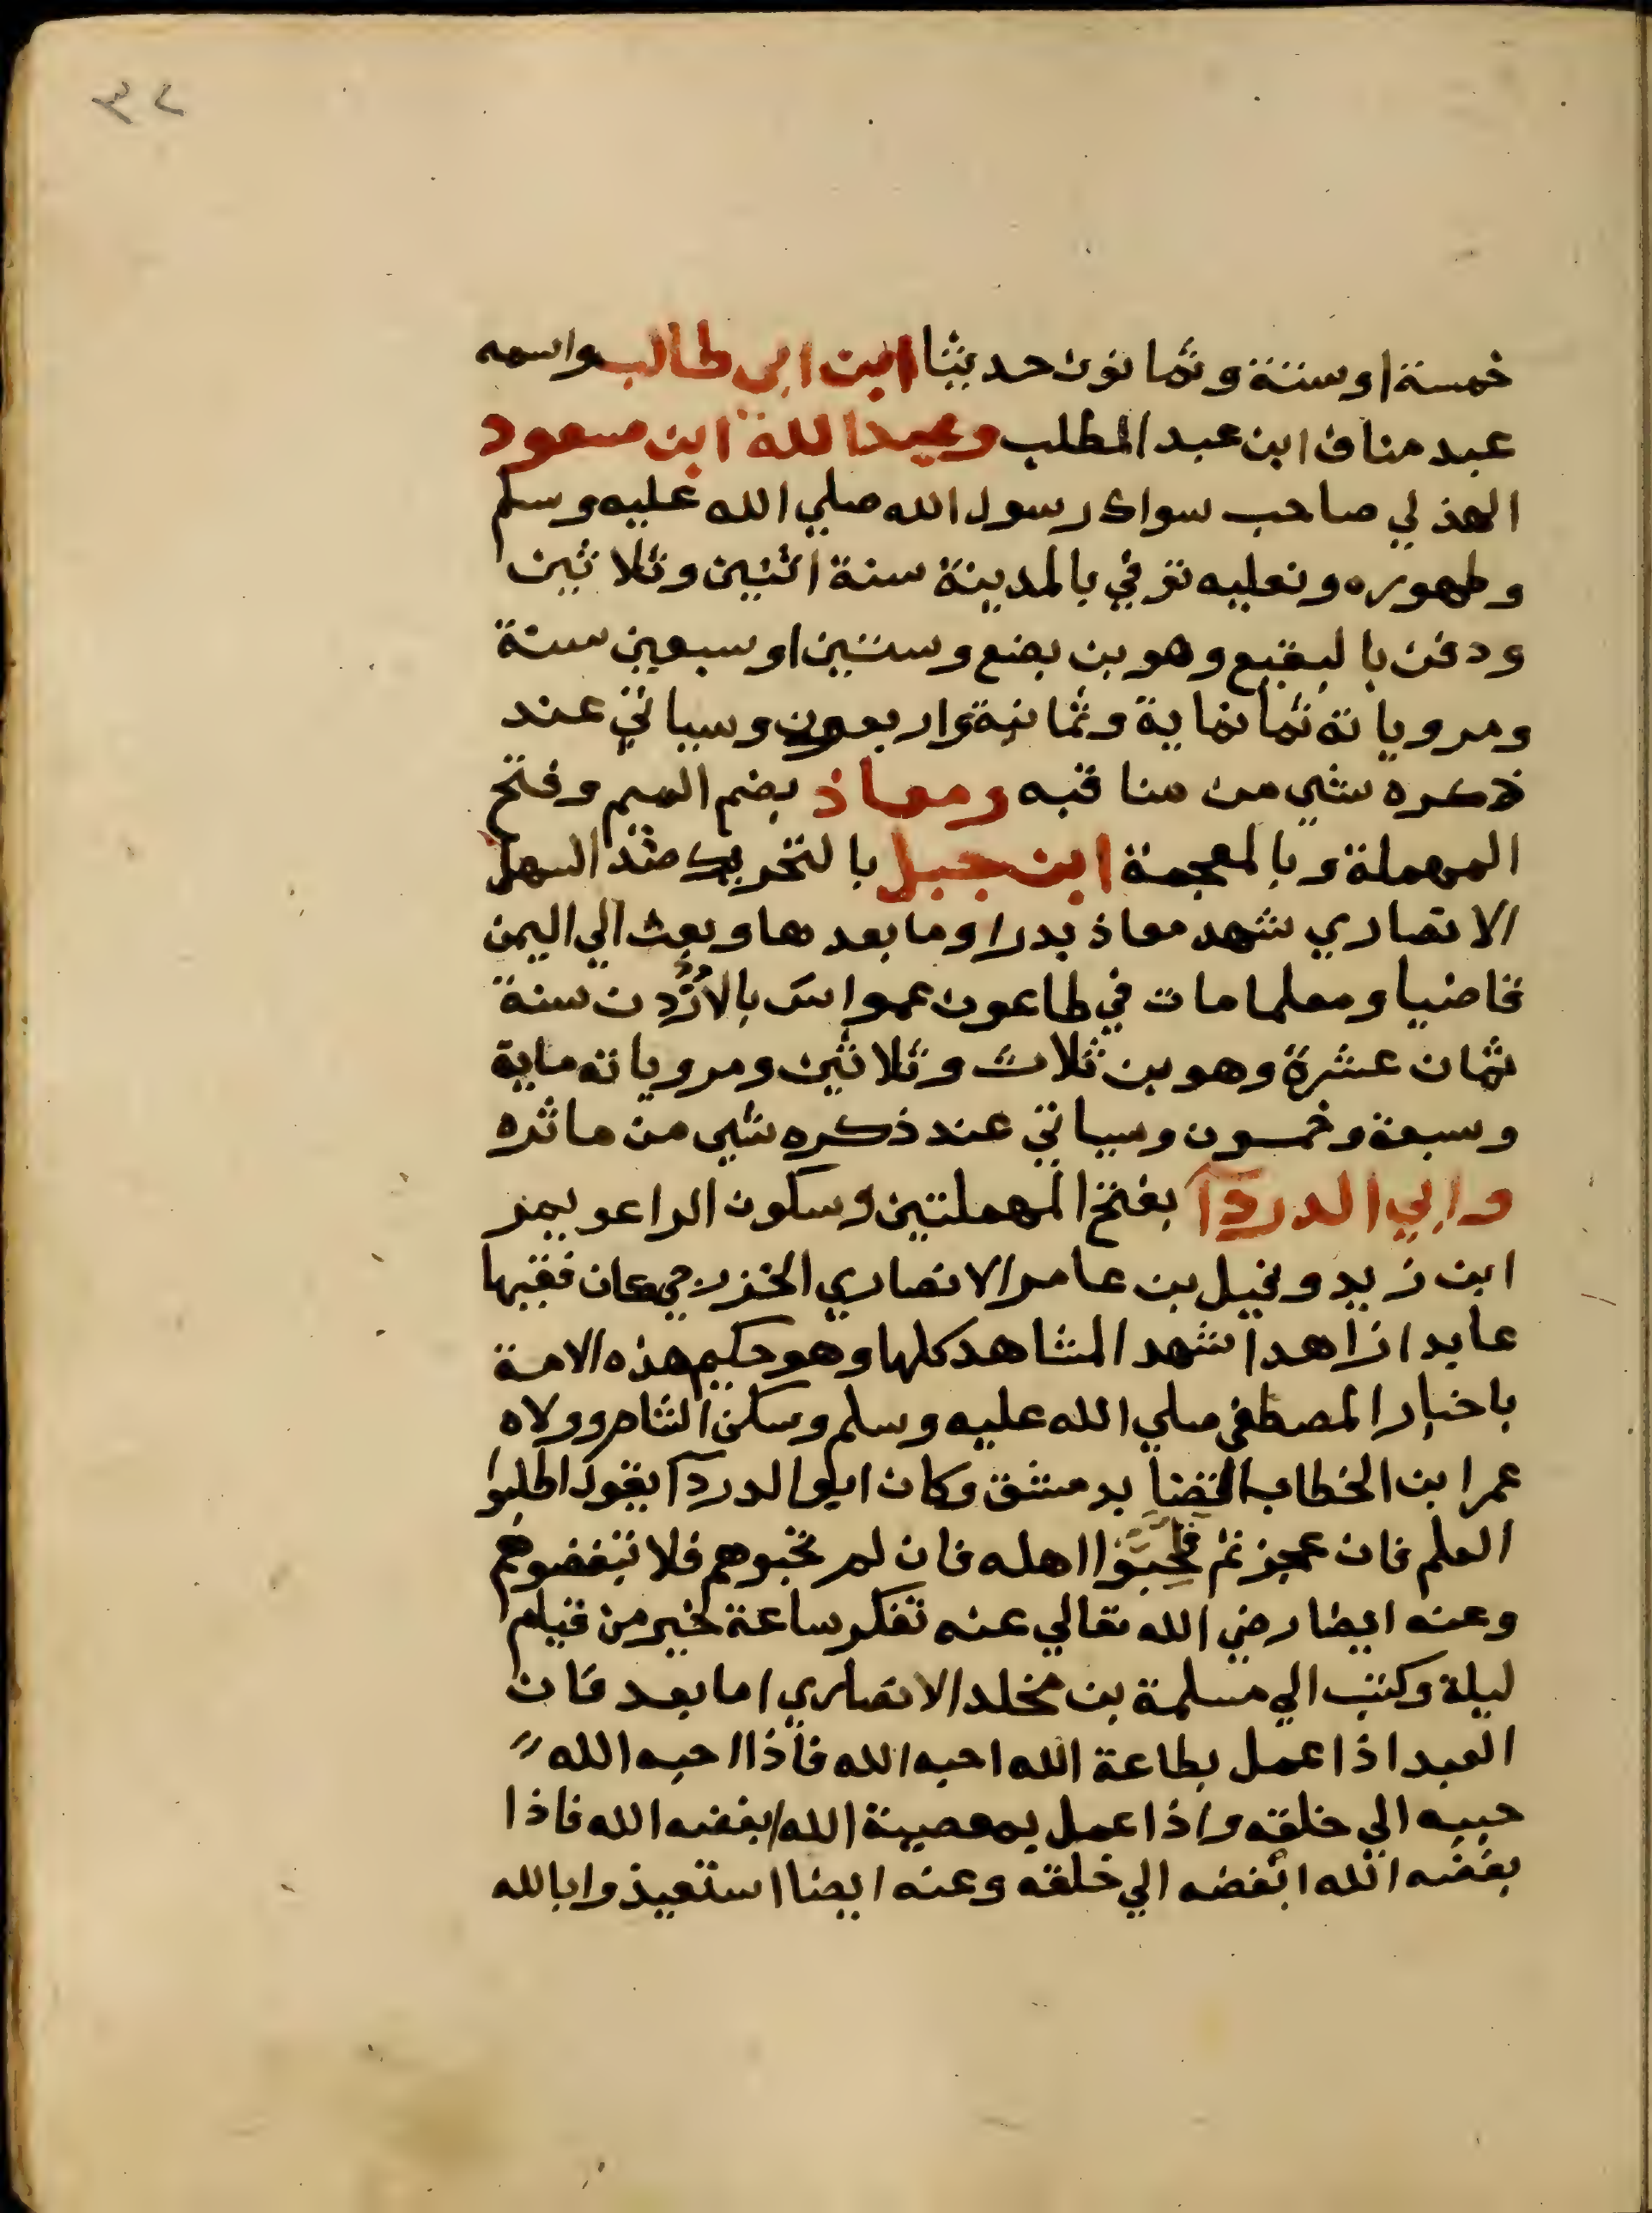 ٣٢
خمسة او ستة وثمانون حديثا ابن ابي طالب واسمه
عبد مناف ابن عبد المطلب وعبد الله ابن مسعود
الهذلي صاحب سواك رسول الله صلي الله عليه وسلم
وطهوره ونعليه توفي بالمدينة سنة اثنين وثلاثين
ودفن بالبقيع وهو بن بضع وستين او سبعين سنة
ومروياته ثمانماية وثمانية واربعون وسياتي عند
ذكره شي من مناقبه ومعاذ بضم الميم وفتح
المهملة وبالمعجمة ابن جبل بالتحريك ضد السهل
الانصاري شهد معاذ بدرا وما بعدها وبعث الي اليمن
قاضيا ومعلما مات في طاعون عمواس بالأُرْدُن سنة
ثمان عشرة وهو بن ثلاث وثلاثين ومروياته ماية
وسبعة وخمسون وسياتي عند ذكره شي من ماثره
وابي الدردآ بفتح المهملتين وسكون الرا عويمر
ابن زيد وقيل بن عامر الانصاري الخزرجي كان فقيها
عابدا زاهدا شهد المشاهد كلها وهو حكيم هذه الامة
باخبار المصطفي صلي الله عليه وسلم وسكن الشام وولاه
عمر ابن الخطاب القضا بدمشق وكان ابوالدردآ يقول اطلبوا
العلم فان عجزتم فحبوا اهله فان لم تحبوهم فلا تبغضوهم
وعنه ايضا رضي الله تعالي عنه تفكر ساعة خير من قيام
ليلة وكتب الي مسلمة بن مخلد الانصاري اما بعد فان
العبد اذا عمل بطاعة الله احبه الله فاذا احبه الله
حببه الي خلقه واذا عمل بمعصية الله ابغضه الله فاذا
بغضه الله ابغضه الي خلقه وعنه ايضا استعيذوا بالله